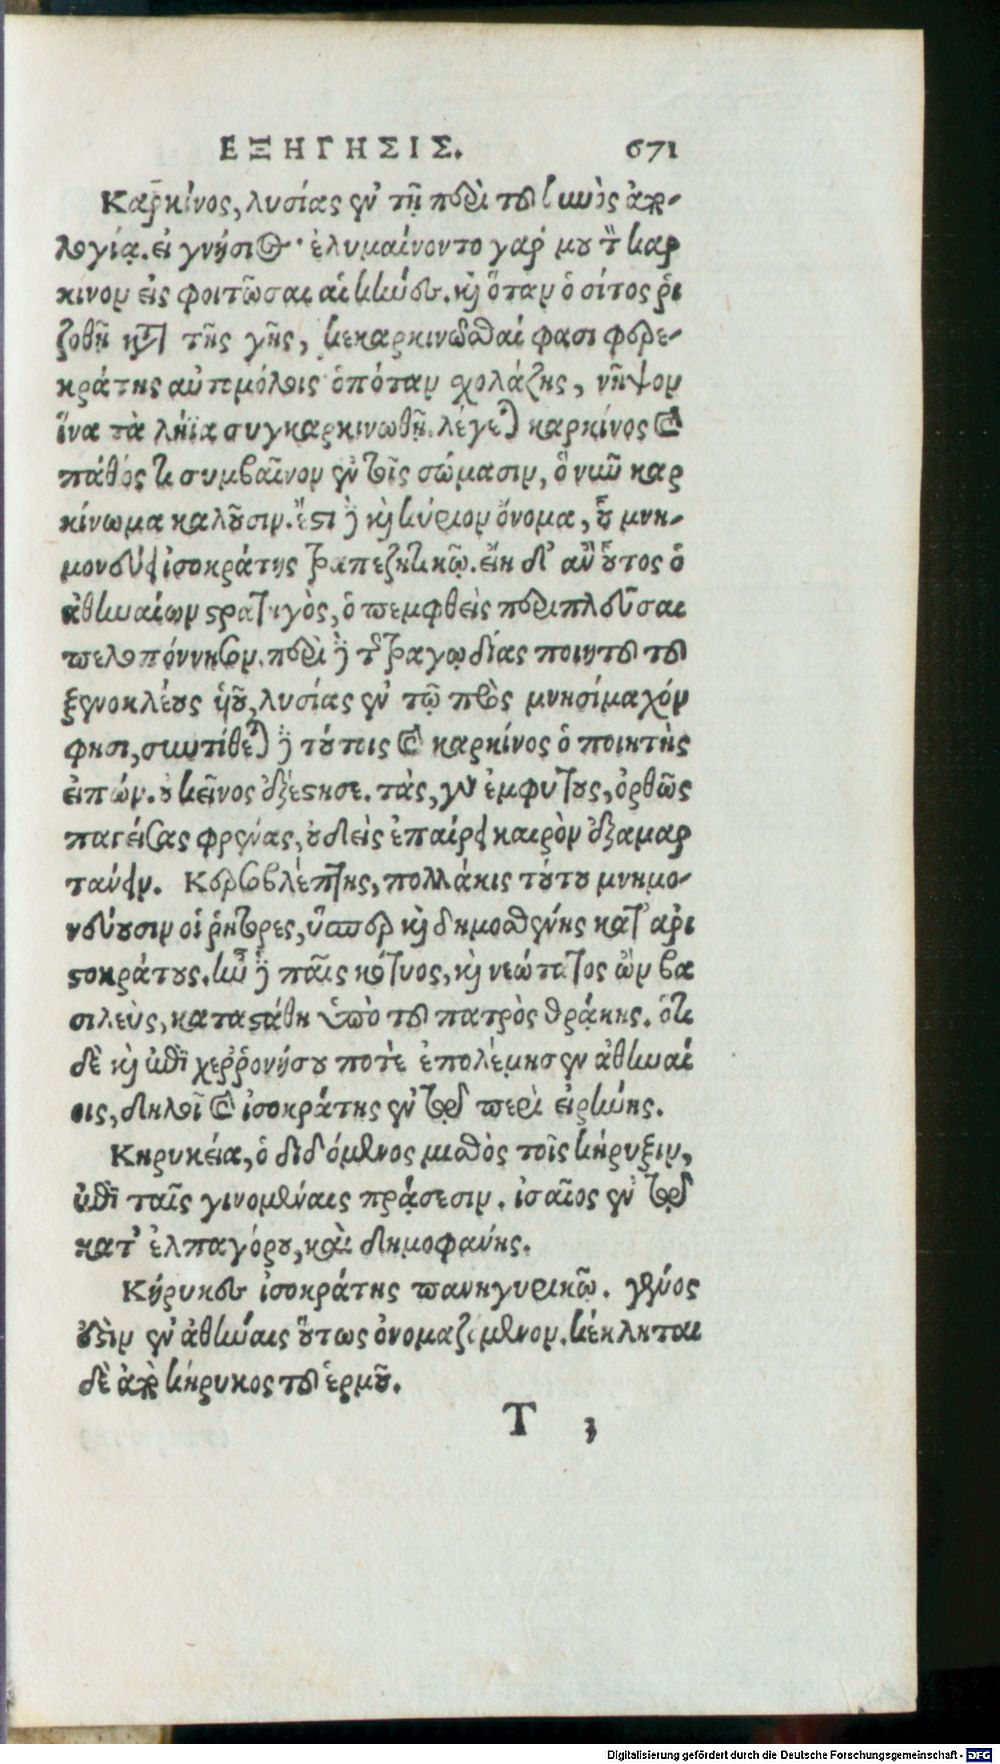 ΕΞΗΓΗΣΙΣ. 671
Καρκίνος, λυσίας ἐν τῇ περὶ τοῦ κυνὸς ἀπο-
λογίᾳ. εἰ γνήσιος· ἐλυμαίνοντο γάρ μου τὸν καρ
κινον εἰσφοιτῶσαι αἱ κύνες. καὶ ὅταν ὁ σίτος ῥι
ζοθῇ κατὰ τῆς γῆς, κεκαρκινῶσθαί φασι φερε-
κράτης αὐτομόλοις ὁπόταν σχολάζης, νῆψον
ἵνα τὰ λήϊα συγκαρκινωθῇ. λέγεται καρκίνος καὶ
πάθός τι συμβαῖνον ἐν τοῖς σώμασιν, ὃ νυῦ καρ
κίνωμα καλοῦσιν. ἔστι δὲ καὶ κύριον ὄνομα, οὗ μνη-
μονεύει ἰσοκράτης τραπεζητικῷ. εἴη δ' ἂν οὗτος ὁ
ἀθηναίων στρατηγὸς, ὁ πεμφθεὶς περιπλοῦσαι
πελοπόννησον. περὶ δὲ τοῦ τραγῳδίας ποιητοῦ τοῦ
ξενοκλέους ἡοῦ, λυσίας ἐν τῷ πρὸς μνησίμαχόν
φησι, συντίθεται δὲ τούτοις καὶ καρκίνος ὁ ποιητὴς
εἰπών. οὐκεῖνος ἐξέστησε. τὰς, γὰρ ἐμφύτους, ὀρθῶς
παγείσας φρένας, οὐδεὶς ἐπαίρει καιρὸν ἐξαμαρ
τάνειν. Κερσοβλέπτης, πολλάκις τούτου μνημο-
νεύουσιν οἱ ῥήτορες, ὥσπερ καὶ δημοσθένης κατ' ἀρι
στοκράτους. ἦν δὲ παῖς κότυος, καὶ νεώτατος ὢν βα
σιλεὺς, κατεστάθη ὑπὸ τοῦ πατρὸς θράκης. ὅτι
δὲ καὶ ἐπὶ χερρονήσου ποτὲ ἐπολέμησεν ἀθηναί
οις, δηλοῖ καὶ ἰσοκράτης ἐν τῷ περὶ εἰρήνης.
Κηρυκεία, ὁ διδόμενος μισθὸς τοῖς κήρυξιν,
ἐπὶ ταῖς γινομέναις πράσεσιν. ἰσαῖος ἐν τῷ
κατ' ἐλπαγόρου, καὶ δημοφάνης.
Κήρυκες ἰσοκράτης πανηγυρικῷ. γένος
ἐστὶν ἐν ἀθήναις οὕτως ὀνομαζόμενον. κέκληται
δὲ ἀπὸ κήρυκος τοῦ ἑρμοῦ.
T 3
Digitalisierung gefördert durch die Deutsche Forschungsgemeinschaft - DFG